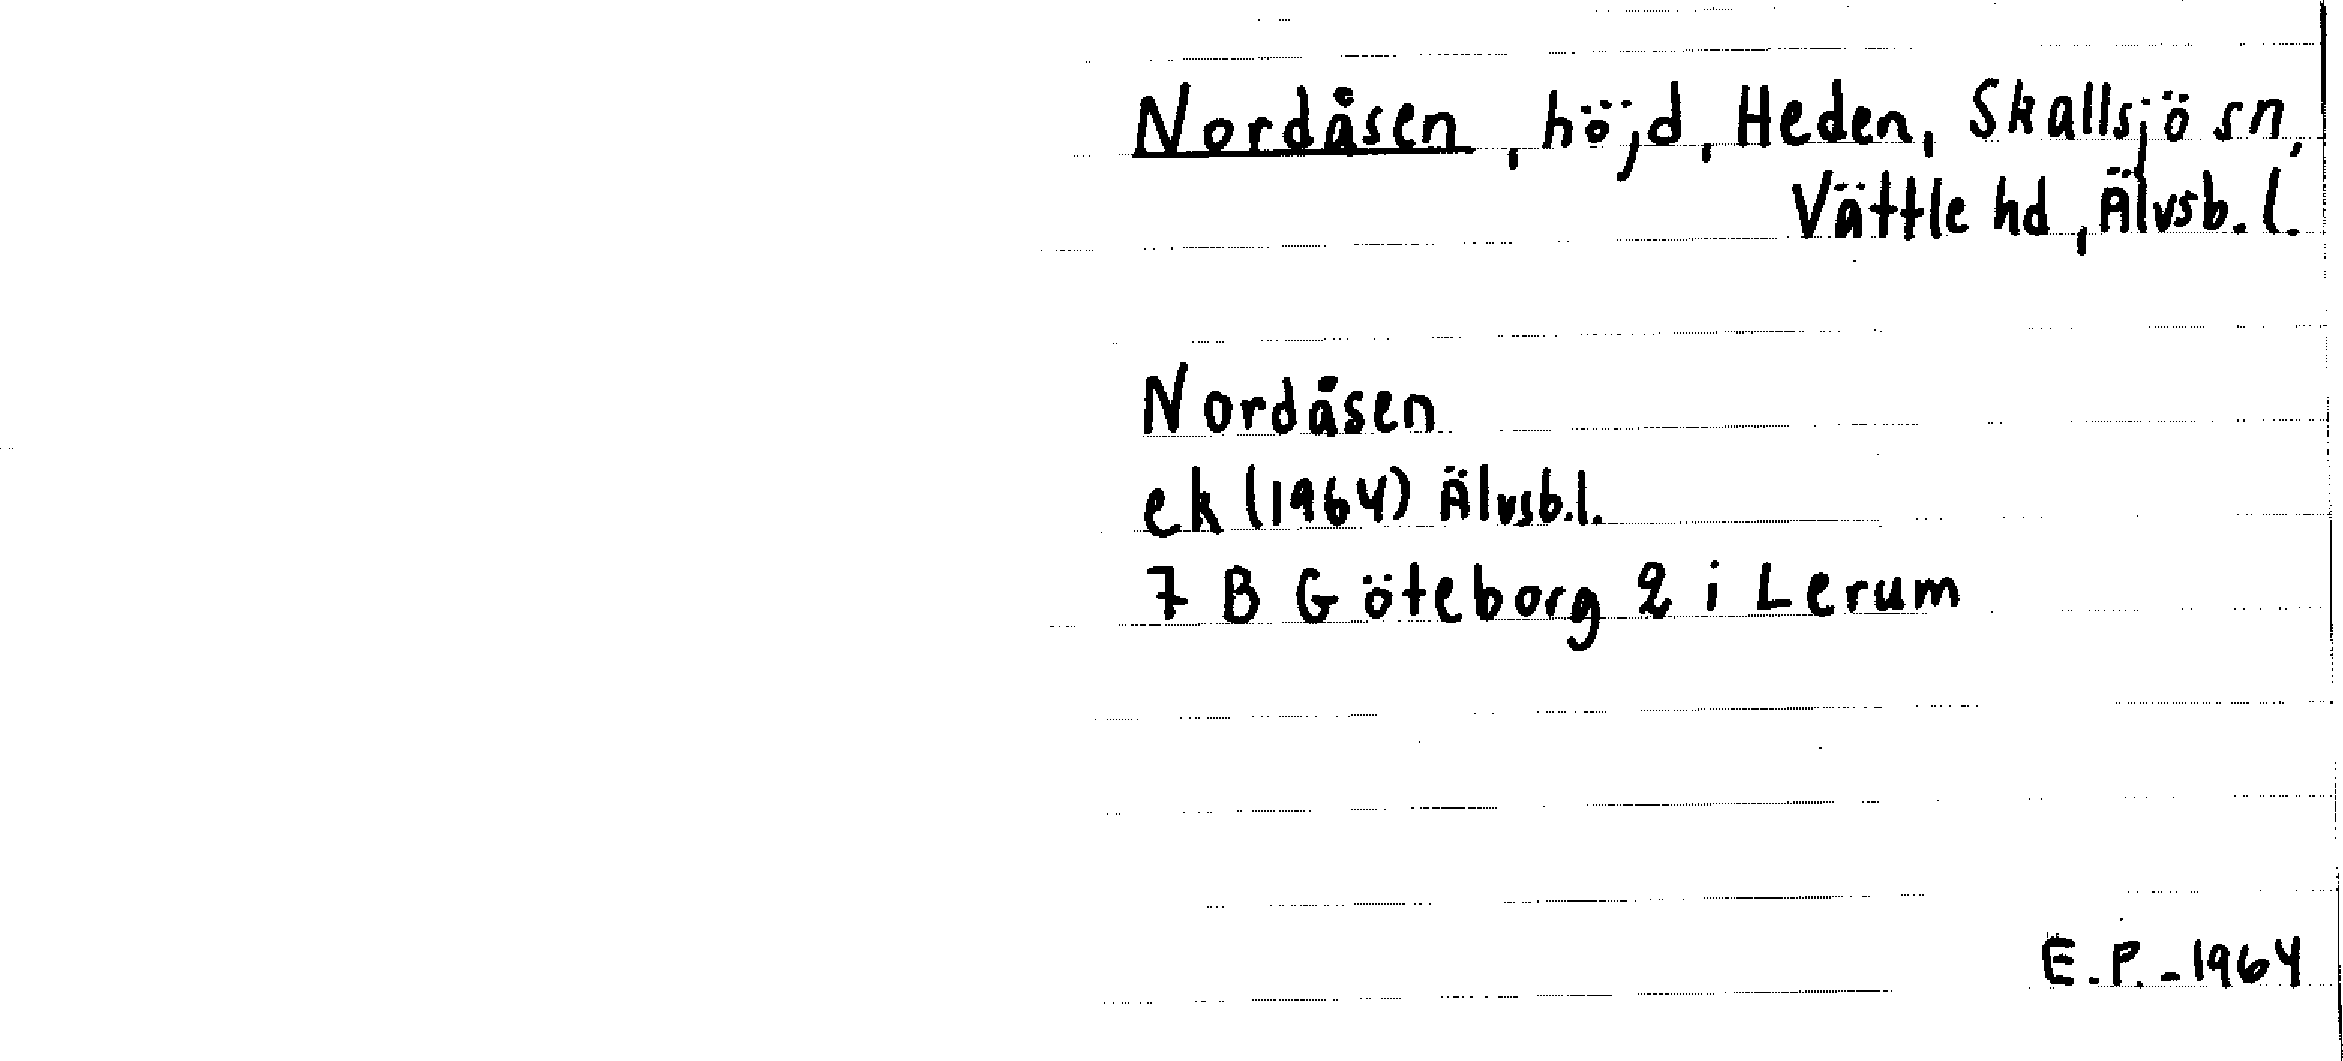 Nordåsen, höjd, Heden, Skallsjö sn,
Vättle hd, Älvsb. l.
Nordåsen
ek (1964) Älvsb.l.
7 B Göteborg 2 i Lerum
E.P. - 1964